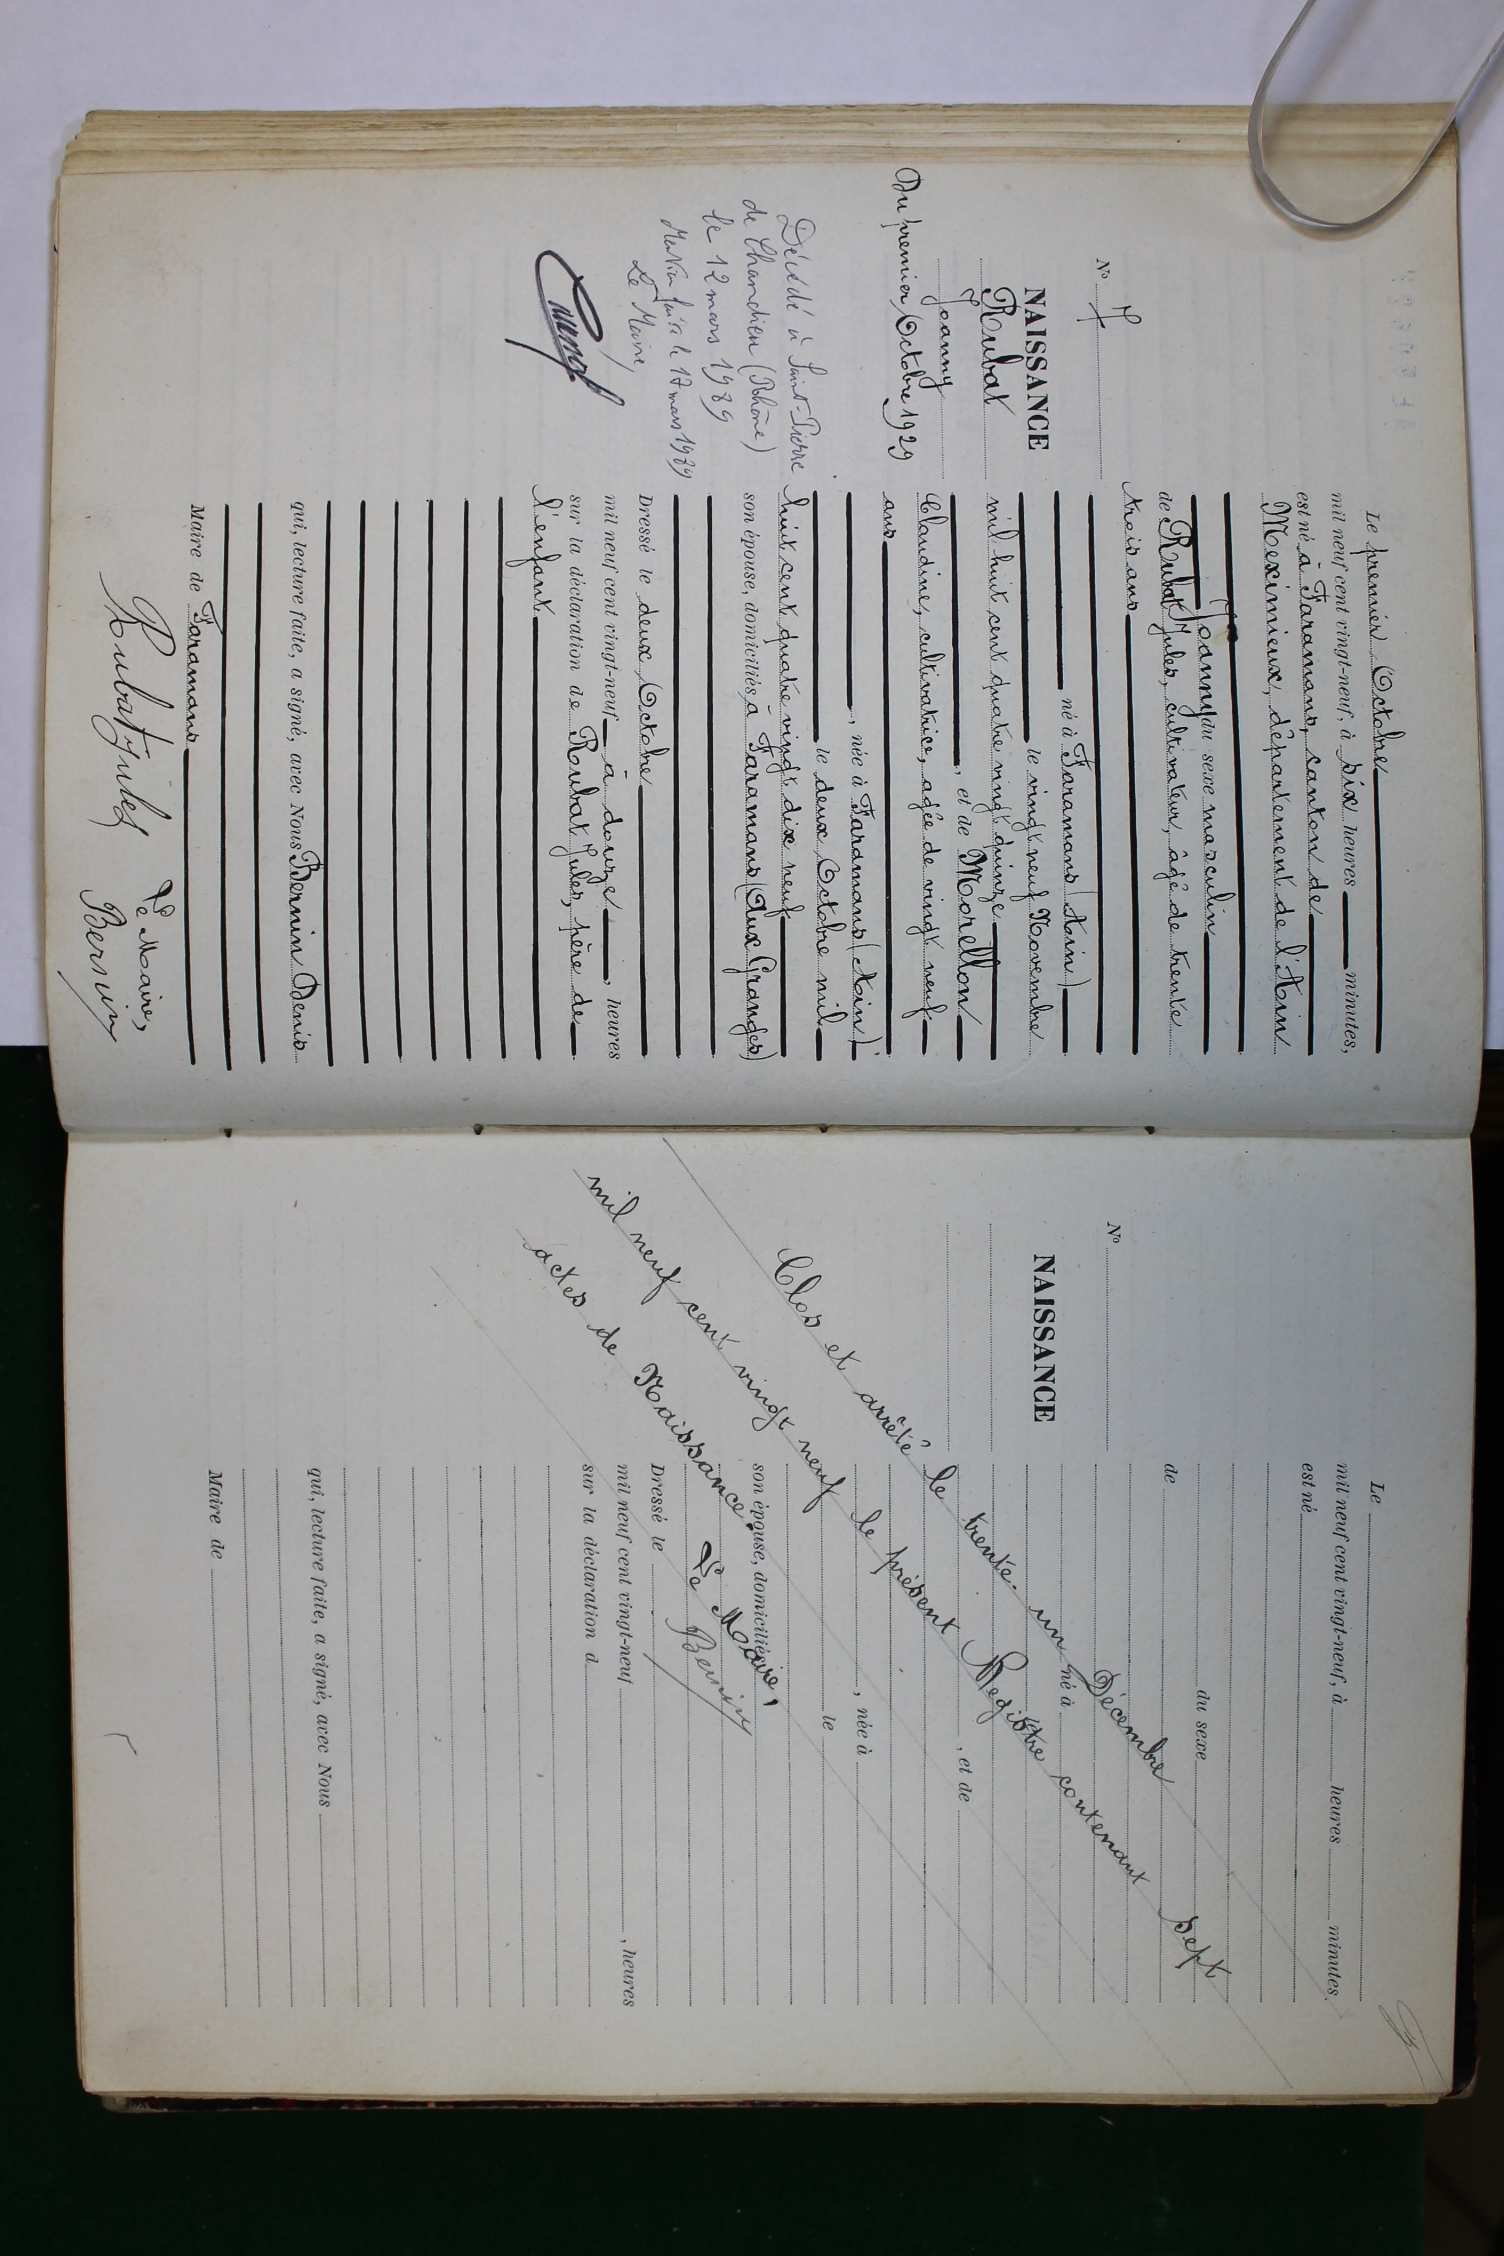 N° 7
NAISSANCE
Rubat
Joanny
Du premier Octobre 1929
Décédé à Saint-Pierre
de Chandieu (Rhône)
le 12 mars 1989
Mention faite le 17 mars 1989
Le Maire,
Le premier Octobre
mil neuf cent vingt-neuf, à six heures minutes,
est né à Faramans, canton de
Meximieux, département de l'Ain
Joanny du sexe masculin
de Rubat Jules, cultivateur, âgé de trente
trois ans
né à Faramans (Ain)
le vingt neuf Novembre
mil huit cent quatre vingt quinze
, et de Morellon
Claudine, cultivatrice, agée de vingt neuf
ans
, née à Faramans (Ain)
le deux Octobre mil
huit cent quatre vingt dix neuf
son épouse, domiciliés à Faramans (Aux Granges)
Dressé le deux Octobre
mil neuf cent vingt-neuf à douze , heures
sur la déclaration de Rubat Jules, père de
l'enfant
qui, lecture faite, a signé, avec Nous Bernin Denis
Maire de Faramans
Rubat Jules Le Maire,
Bernin
N°
NAISSANCE
Le
mil neuf cent vingt-neuf, à heures minutes.
est né
du sexe
de
né à
le
, et de
, née à
le
son épouse, domiciliés
Dressé le
mil neuf cent vingt-neuf , heures
sur la déclaration d
qui, lecture faite, a signé, avec Nous
Maire de
Clos et arrêté le trente-un Décembre
mil neuf cent vingt neuf le présent Registre contenant sept
actes de Naissance.
Le Maire,
Bernin